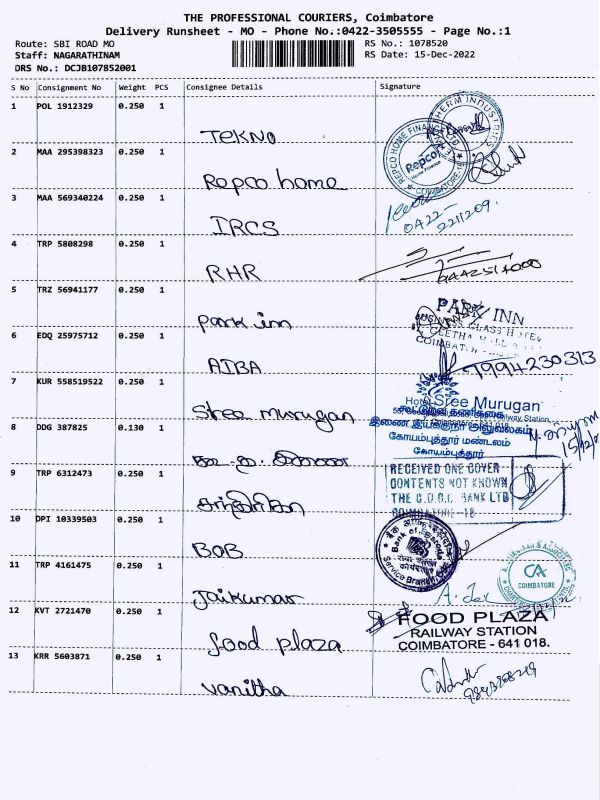 THE PROFESSIONAL COURIERS, Coimbatore
Delivery Runsheet - MO - Phone No.:0422-3505555 - Page No.:1
Route: SBI ROAD MO
RS No.: 1078520
Staff: NAGARATHINAM
RS Date: 15-Dec-2022
DRS No.: DCJB107852001
S No Consignment No Weight PCS Consignee Details Signature
1 POL 1912329 0.250 1
TEKNO
2 MAA 295398323 0.250 1
REPCO HOME FINANCE LTD
Repco
Home Finance
COIMBATORE
Repco home
3 MAA 569340224 0.250 1
IRCS
0422-
2211209.
4 TRP 5808298 0.250 1
RHR
5 TRZ 56941177 0.250 1
PARK INN
BUSINESS CLASS HOTEL
GEETHA HALL
park inn
COIMBATORE
6 EDQ 25975712 0.250 1
AIBA
7994230313
7 KUR 558519522 0.250 1
Hotel Sree Murugan
Sree murugan
Railway Station,
8 DDG 387825 0.130 1
இணை இயக்குநர் அலுவலகம்
கோயம்புத்தூர் மண்டலம்
கோயம்புத்தூர்
9 TRP 6312473 0.250 1
RECEIVED ONE COVER
CONTENTS NOT KNOWN
BANK LTD
COIMBATORE-18
10 DPI 10339503 0.250 1
Bank of Baroda
Service Branch
BOB
11 TRP 4161475 0.250 1
CA
COIMBATORE
Jaikumar
12 KVT 2721470 0.250 1
FOOD PLAZA
RAILWAY STATION
food plaza
COIMBATORE - 641 018.
13 KRR 5603871 0.250 1
vanitha